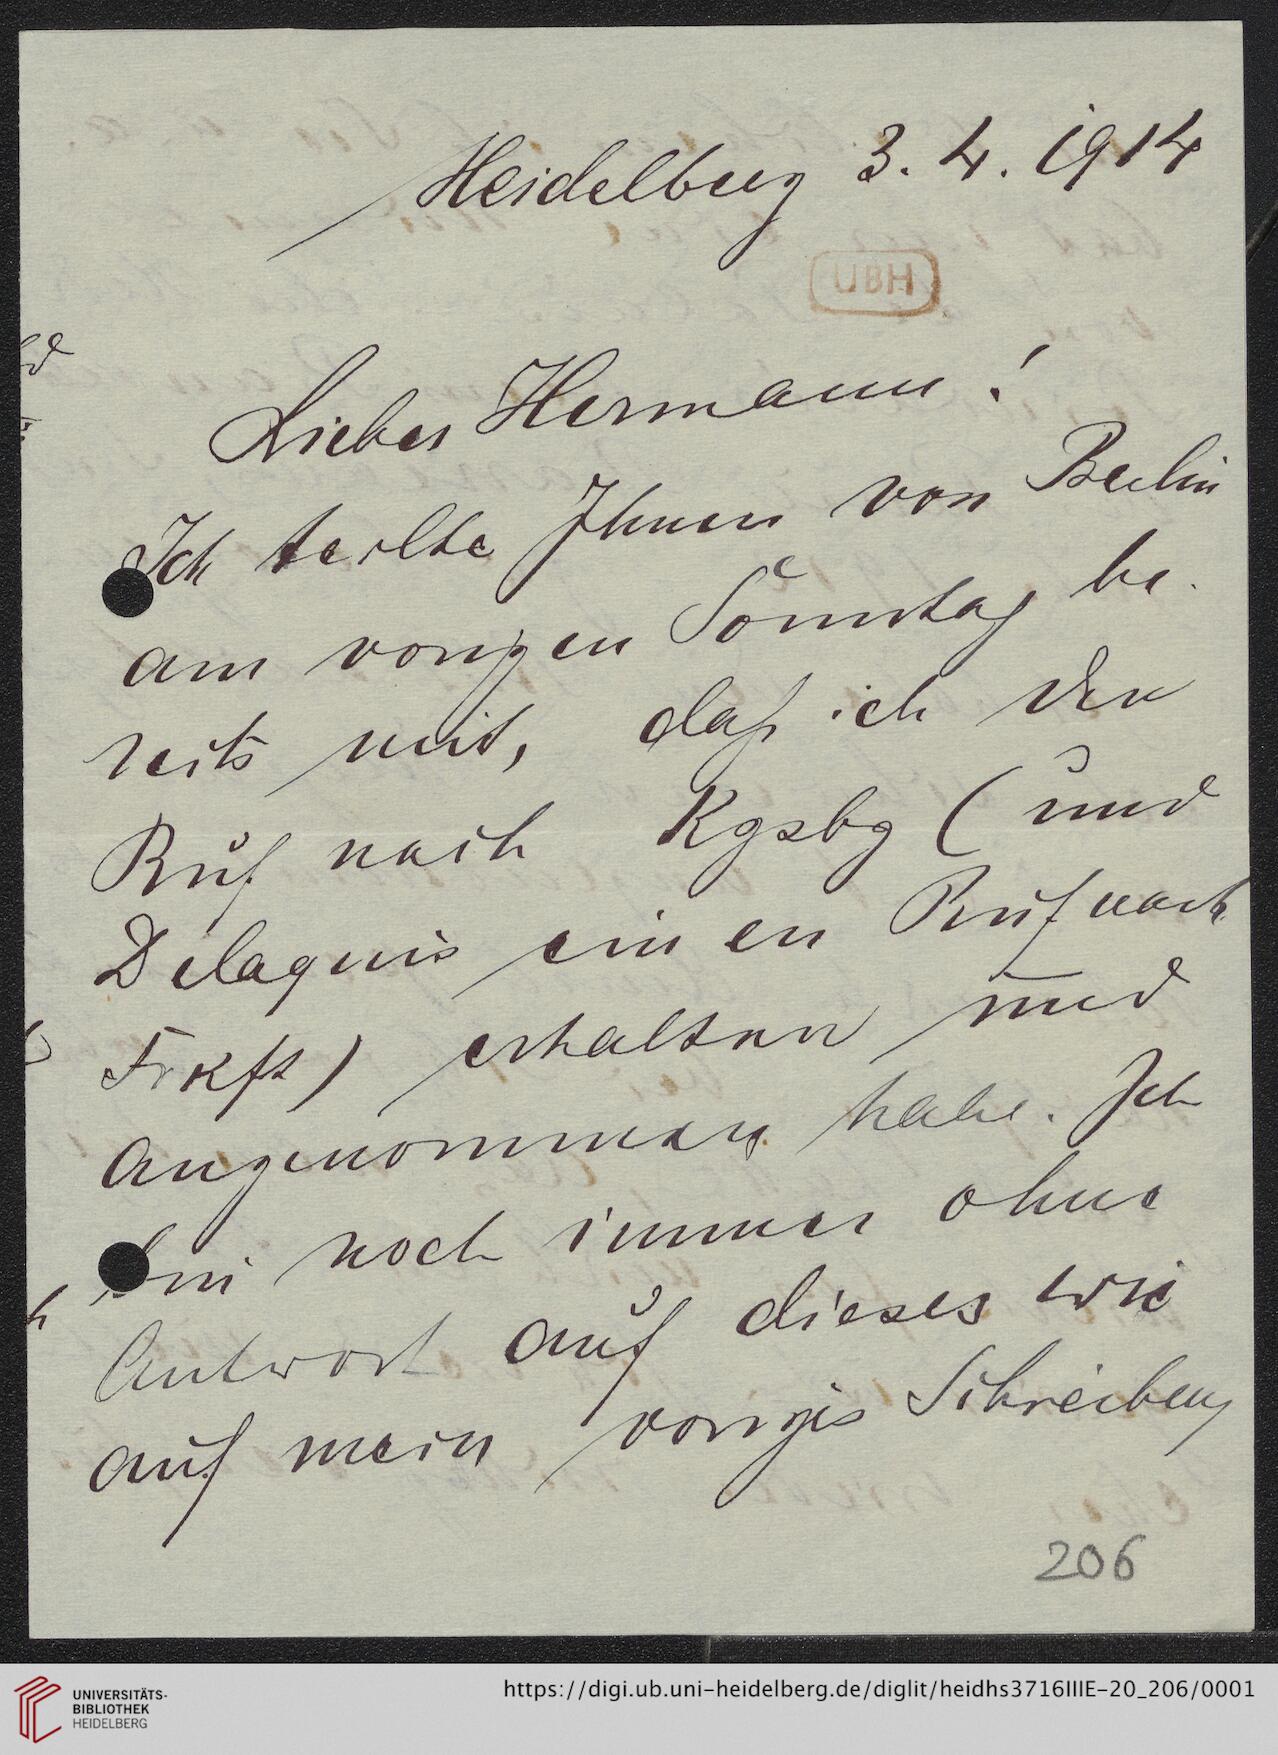 Heidelberg 3. 4. 1914
UBH
Lieber Hermann!
Ich teilte Ihnen von Berlin
am vorigen Sonntag be-
reits mit, daß ich den
Ruf nach Kgsbg (und
Delaquis einen Ruf nach
Frkft) erhalten und
angenommen habe. Ich
bin noch immer ohne
Antwort auf dieses wie
auf mein voriges Schreiben,
206
UNIVERSITÄTS-
BIBLIOTHEK
HEIDELBERG
https://digi.ub.uni-heidelberg.de/diglit/heidhs3716IIIE-20_206/0001